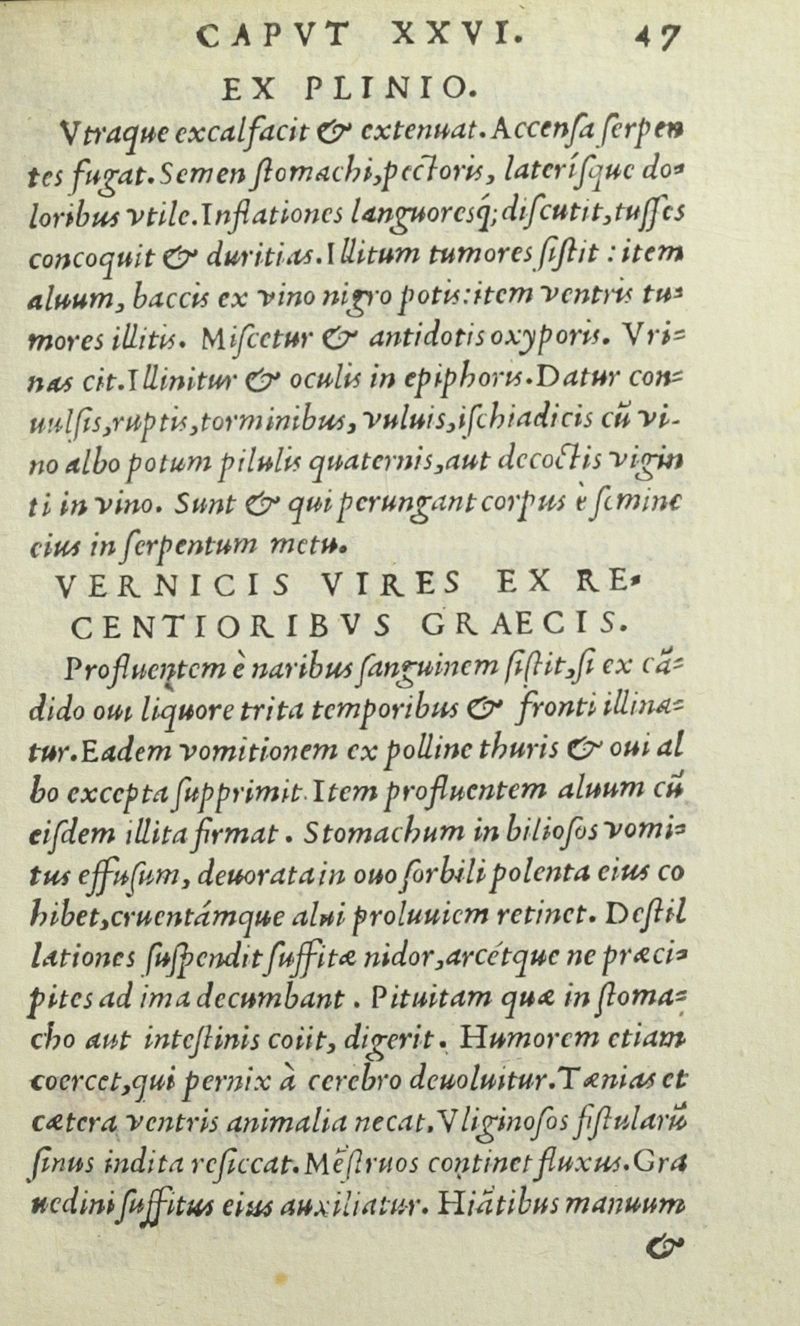 CAPVT XXVI. 47
EX PLINIO.
Vtraque excalfacit & extenuat. Accenſa ſerpen
tes fugat. Semen ſtomachi, pectoris, lateríſque do=
loribus vtile. Inflationes languoresq́; diſcutit, tuſſes
concoquit & duritias. Illitum tumores ſiſtit : item
aluum, baccis ex vino nigro potis: item ventris tu=
mores illitis. Miſcetur & antidotis oxyporis. Vri=
nas cit. Illinitur & oculis in epiphoris. Datur con=
uulſis, ruptis, torminibus, vuluis, iſchiadicis cū vi-
no albo potum pilulis quaternis, aut decoctis vigin
ti in vino. Sunt & qui perungant corpus è ſemine
eius in ſerpentum metu.
VERNICIS VIRES EX RE=
CENTIORIBVS GRAECIS.
Profluentem è naribus ſanguinem ſiſtit, ſi ex cā=
dido oui liquore trita temporibus & fronti illina=
tur. Eadem vomitionem ex polline thuris & oui al
bo excepta ſupprimit. Item profluentem aluum cū
eiſdem illita firmat. Stomachum in bilioſos vomi=
tus effuſum, deuorata in ouo ſorbili polenta eius co
hibet, cruentámque alui proluuiem retinet. Deſtil
lationes ſuſpendit ſuffitæ nidor, arcétque ne præci=
pites ad ima decumbant. Pituitam quæ in ſtoma=
cho aut inteſtinis coiit, digerit. Humorem etiam
coercet, qui pernix à cerebro deuoluitur. Tænias et
cætera ventris animalia necat. Vliginoſos fiſtularū
ſinus indita reſiccat. Mēſtruos continet fluxus. Gra
uedini ſuffitus eius auxiliatur. Hiātibus manuum
&